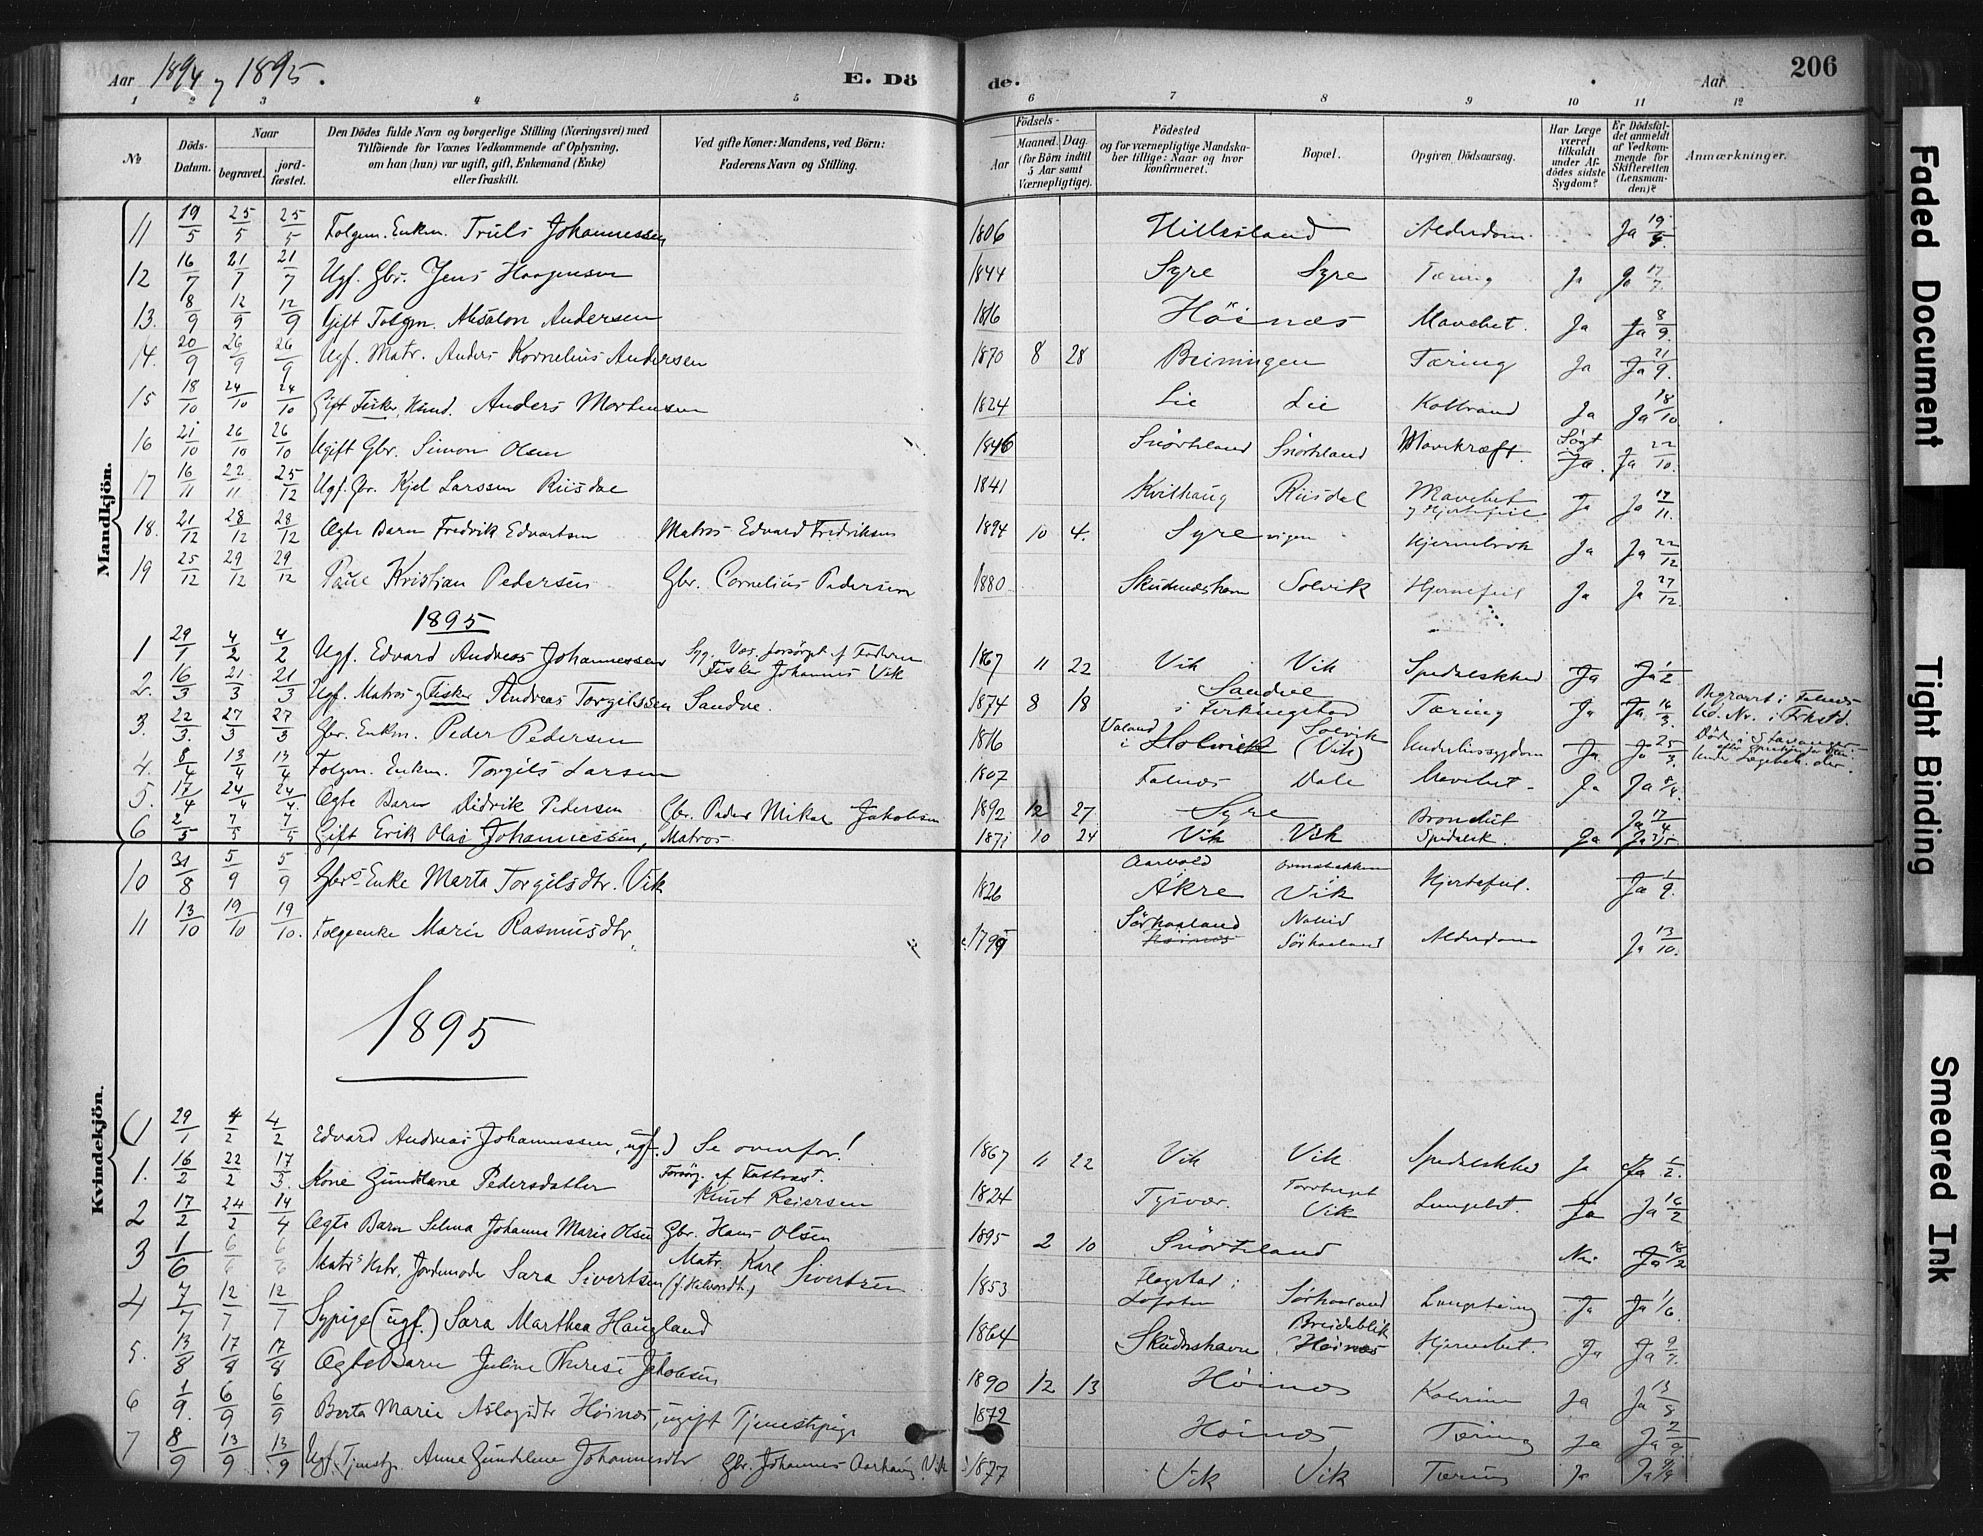 Aar 1894 og 1895.
E. Döde.
Aar
206
1 2 3 4 5 6 7 8 9 10 11 12
No
Döds-Datum.
Naar
begravet.
jord-fæstet.
Den Dödes fulde Navn og borgerlige Stilling (Næringsvei) med
Tilföiende for Voxnes Vedkommende af Oplysning,
om han (hun) var ugift, gift, Enkemand (Enke)
eller fraskilt.
Ved gifte Koner: Mandens, ved Börn:
Faderens Navn og Stilling.
Födsels-
Aar
Maaned. Dag.
(for Börn indtil
5 Aar samt
Værnepligtige).
Födested
og for værnepligtige Mandska-
ber tillige: Naar og hvor
konfirmeret.
Bopæl.
Opgiven Dödsaarsag.
Har Læge
været
tilkaldt
under Af-
dödes sidste
Sygdom?
Er Dödsfal-
det anmeldt
af Vedkom-
mende for
Skifteretten
(Lensman-
den)?
Anmærkninger.
Mandkjön.
11 19/5 25/5 25/5 Folgem. Enkm. Truls Johannessen 1806 Hillesland Alderdom Ja 19/
12 16/7 21/7 21/7 Ugf. Gbr. Jens Haagensen 1844 Syre Syre Tæring Ja Ja 17/7
13. 8/9 12/9 12/9 Gift Folgm. Absalon Andersen 1816 Höinæs Mavebet. Ja Ja 8/9.
14. 20/9 26/9 26/9 Ugf. Matr. Anders Kornelius Andersen 1870 8 28 Beiningen Tæring Ja Ja 21/9.
15 18/10 24/10 24/10 Gift Fisker, Anders Mortensen 1824 Lie Lie Kolbrand Ja Ja 18/10
16 21/10 26/10 26/10 Ugift Gbr. Simon Olsen 1846 Snörteland Snörteland Mavekræft. Sögt Ja. Ja 22/10.
17 16/11 22/11 25/12 Ugf. Gbr. Kjel Larssen Riisdal 1841 Kvilhaug Riisdal Mavebet og Hjertefeil Ja Ja 17/11.
18. 21/12 28/12 28/12 Ægte Barn Fredrik Edvartsen Matros Edvard Fredriksen 1894 10 4. Syrevigen Ja Ja 22/12
19 25/12 29/12 29/12 Kristian Pedersen Gbr. Cornelius Pedersen 1880 Skudeneshavn Solvik Hjernefeil Ja Ja 27/12.
1895
1 29/1 4/2 4/2 Ugf. Edvard Andreas Johannessen Syg. Var forsörget af Faderen Fisker Johannes Vik 1867 11 22 Vik Vik Spedalskhed Ja Ja 1/2.
2. 16/3 21/3 21/3 Ugf. Matros og Fisker Andreas Torgilssen Sandve. 1874 8 18 Sandve i Ferkingstad Tæring Ja Ja 16/3. Begravet i Falnes
3. 22/3. 27/3 27/3 Gbr. Enkm. Peder Pedersen 1816 Valand i Solvik (Vik) Underlivssygdom Ja Ja 25/3. Död i Stavanger
under Lægebeh. der.
4. 8/4 13/4 13/4 Folgm. Enkm. Torgils Larsen 1807 Falnæs Dale Mavebet. Ja Ja 8/4.
5. 17/4 24/4 24/4. Ægte Barn Didrik Pedersen Gbr. Peder Mikal Jakobsen 1892 12 27 Syre Bronchit Ja 17/4
6 2/5 7/5 7/5 Gift Erik Olai Johannessen, Matros 1871 10 24 Vik Vik Spedalsk. Ja Ja 3/5
Kvindekjön.
10 31/8 5/9 5/9 Gbrs Enke Marta Torgilsdtr. Vik 1826 Aarvold Åkre Vik Hjertefeil. Ja 1/9.
11 13/10 19/10 19/10. Folgeenke Marie Rasmusdtr. 179 Sörhaaland Höinæs Sörhaaland Alderdom Ja 13/10.
1895
(1 29/1 4/2 4/2 Edvard Andreas Johannessen, ugf.) Se ovenfor! 1867 11 22 Vik Vik Spedalskhed Ja Ja 1/2.
1. 16/2 22/2 17/3. Kone Gundlane Pedersdatter Forsörg. af Fattigv. Knut Reiersen 1824 Tysvær. Vik Lungebet. Ja Ja 16/2
2 17/2 24/2 14/4 Ægte Barn Selma Johanna Marie Olsen Gbr. Hans Olsen 1895 2 10 Snörteland Nei Ja 18/2
3 1/6 6/6 6/6 Matrs Kstr. Jordemoder Sara Sivertsen Matr. Karl Sivertsen (f. Halvorsdtr.) 1853 Flagstad i Lofoten Sörhaaland Lungetæring Ja Ja 1/6.
4 7/7 12/7 12/7 Sypige (ugf.) Sara Marthea Haugland 1864 Skudeshavn Breidablik Höinæs Hjernebet. Ja Ja 9/7.
5. 13/8 17/8 17/8 Ægte Barn Juline Therese Jakobsen 1890 12 13 Höinæs Ja Ja 13/8
6 1/9. 6/9 6/9 Berta Marie Aslagsdtr Höinæs, ugift Tjenestepige 1872 Höinæs Tæring Ja Ja 2/9
7 8/9 13/9 13/9 Ugf. Tjenstp. Anna Gundelene Johannesdtr Gbr. Johannes Aarhaug, Vik 1877 Vik Vik Tæring Ja Ja 9/9
Faded Document
Tight Binding
Smeared Ink